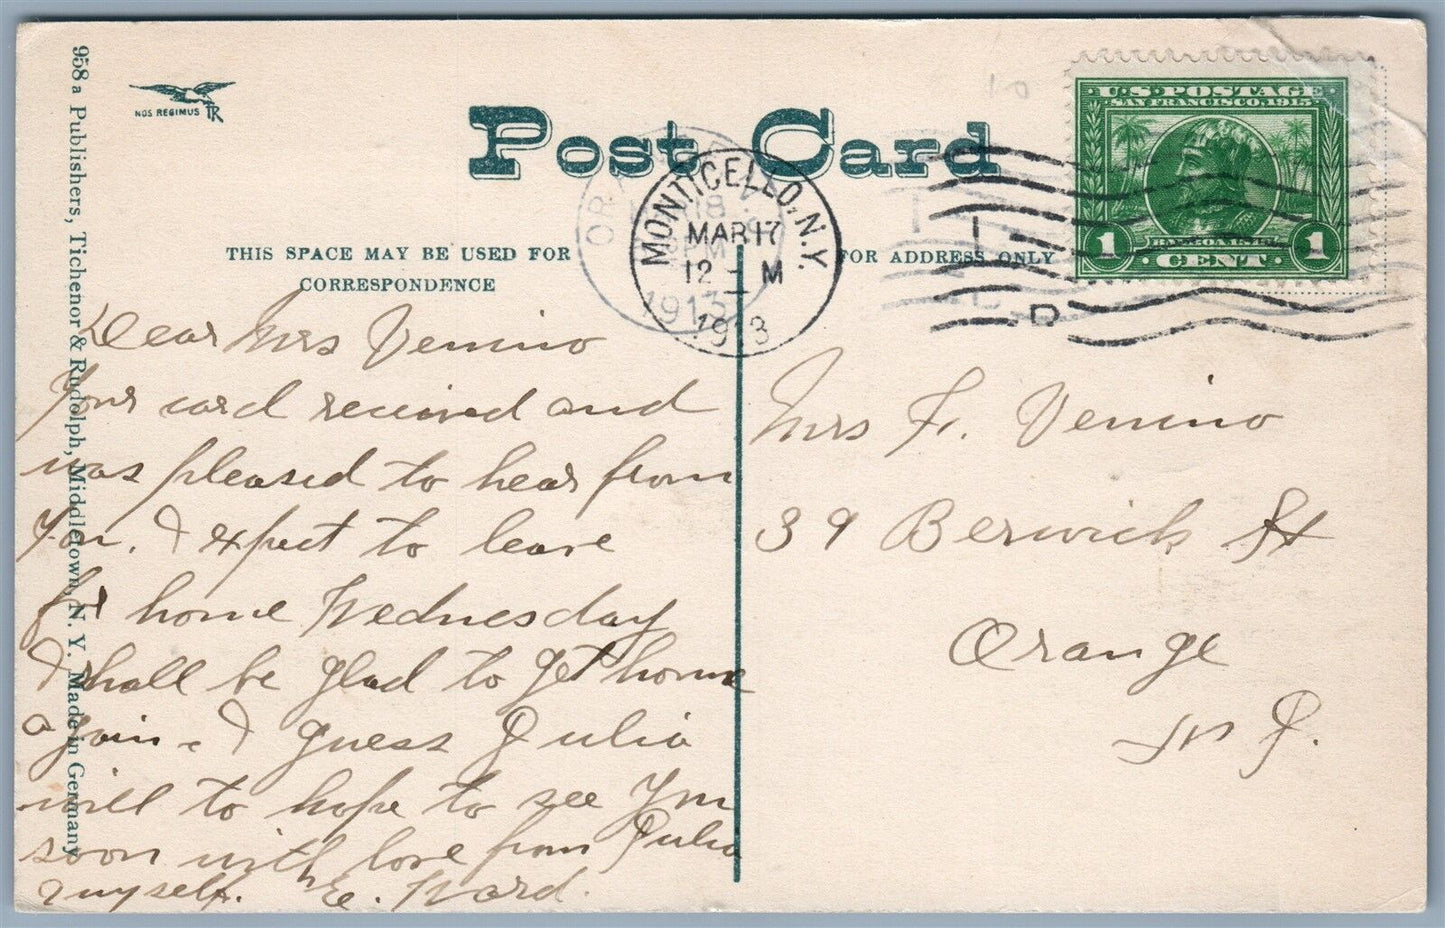 958 a Publishers, Tichenor & Rudolph, Middletown, N. Y. Made in Germany
NOS REGIMUS TR
Post Card
THIS SPACE MAY BE USED FOR
CORRESPONDENCE
FOR ADDRESS ONLY
MONTICELLO, N.Y.
MAR 17
12 - M
1913
OR
18
1913
U.S. POSTAGE
SAN FRANCISCO, 1915
1 CENT 1
Dear Mrs Venino
Your card received and
was pleased to hear from
You. I expect to leave
for home Wednesday
I shall be glad to get home
again - I guess Julia
will to hope to see You
soon with love from Julia
& myself. E. Ward.
Mrs F. Venino
39 Berwick St
Orange
N J.